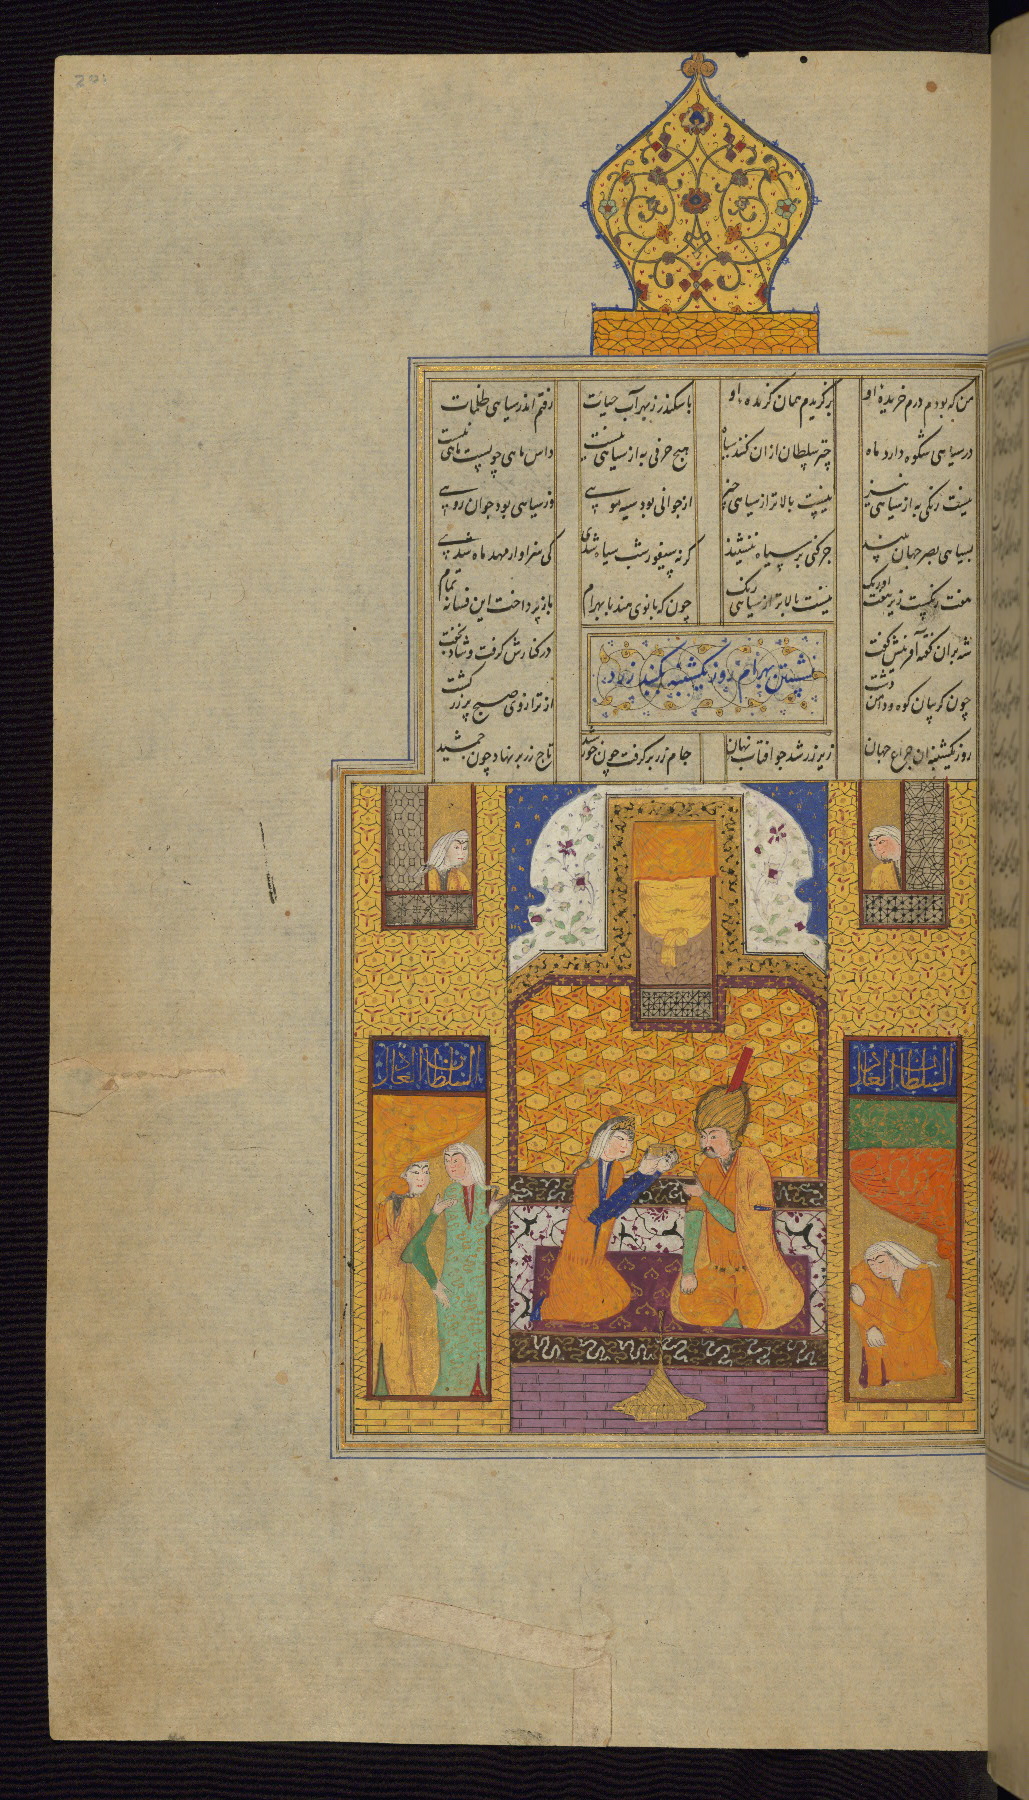 من که بودم درم خریدهٔ او برگزیدم همان گزیدهٔ او با سکندر ز بهر آب حیات رفتم اندر سیاهی ظلمات
در سیاهی شکوه دارد ماه چتر سلطان از ان کنند سیاه هیچ حرفی به از سیاهی نیست داس ماهی چو پشت ماهی نیست
نیست رنگی به از سیاهی نیز نیست بالاتر از سیاهی چیز از جوانی بود سیه مویی وز سیاهی بود جوان رویی
بسیاهی بصر جهان بیند چرکنی بر سیاه ننشیند گر نه سیفور شب سیاه شدی کی سزاوار مهد ماه شدی
هفت رنگست زیر هفت اورنگ نیست بالاتر از سیاهی رنگ چون که بانوی هند با بهرام باز پرداخت این فسانه تمام
شه بران گفته آفرینش گفت در کنارش گرفت و شاد بخفت
نشستن بهرام روز یکشنبه گنبد زرد
چون گریبان کوه و دامن دشت از ترازوی صبح پر زر گشت
روز یکشنبه ان چراغ جهان زیر زر شد چو افتاب نهان جام زر بر گرفت چون خورشید تاج زر بر نهاد چون جمشید
السلطان العادل
السلطان العادل